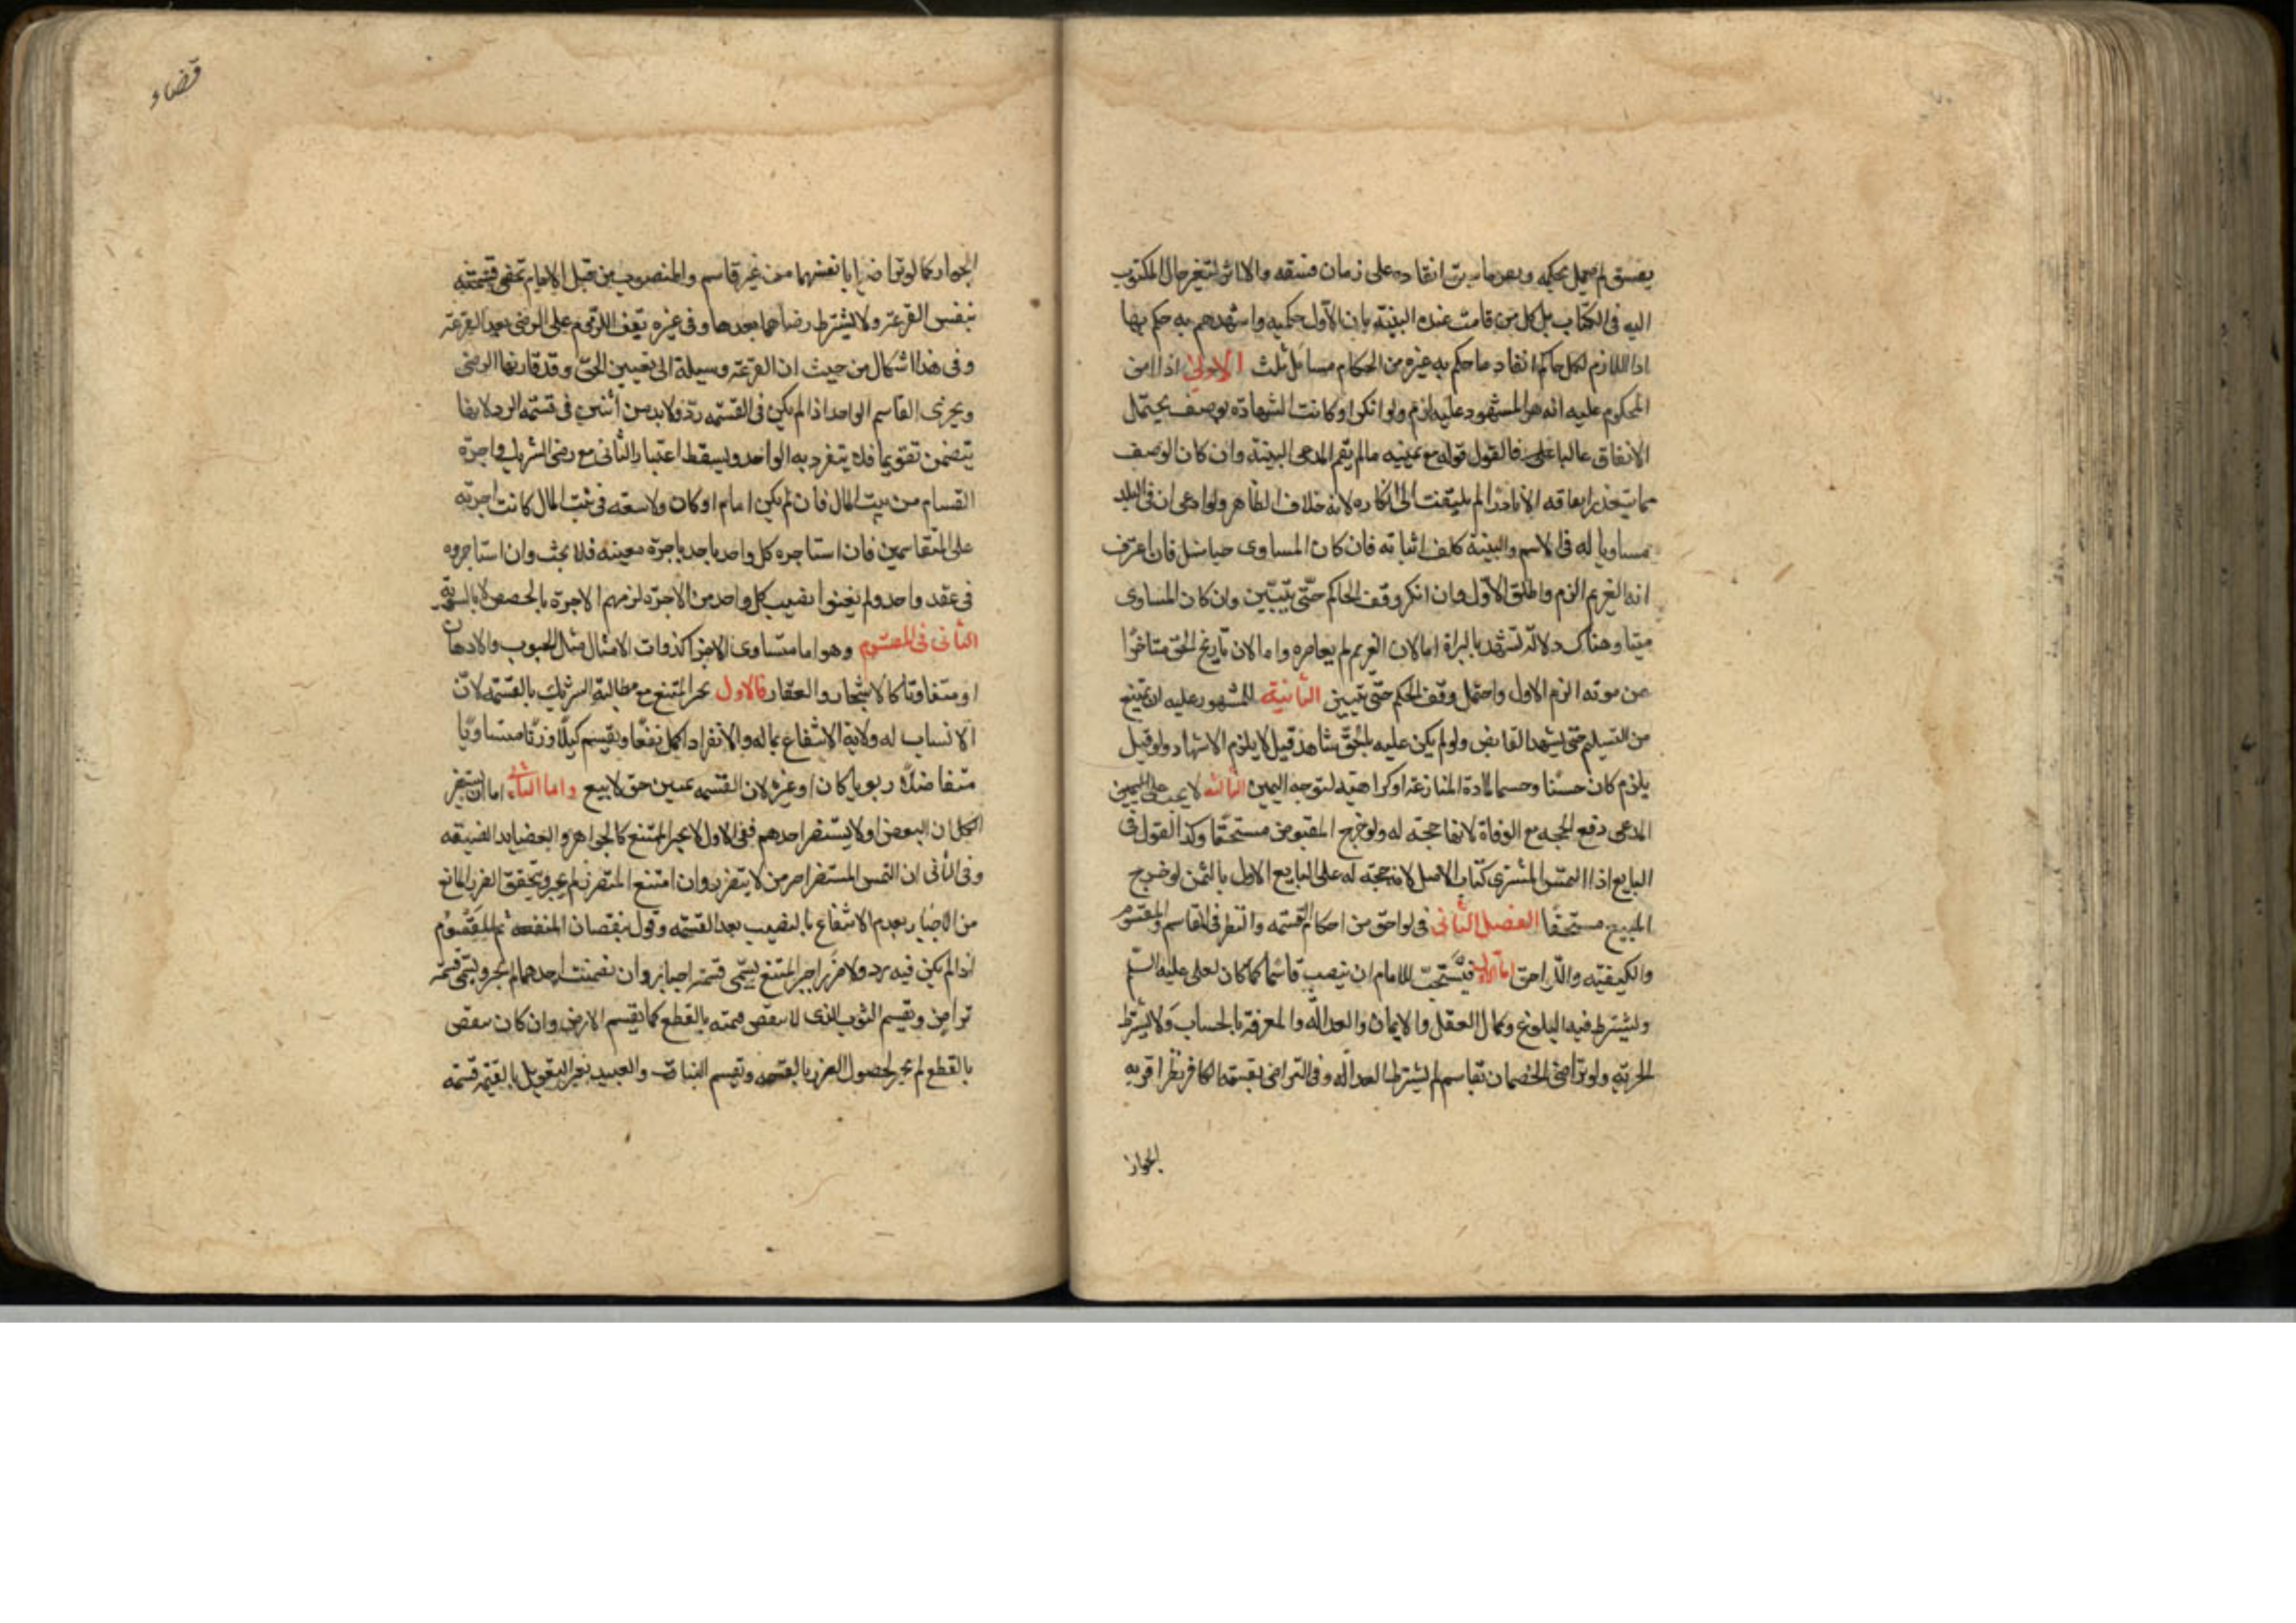 يفسق لم يعمل بحكمه ويقر ما سبق انفاده على زمان فسقه ولا اثر لتغير حال المكتوب
اليه فى الكتاب بل كل من قامت عنده البينة بان الاول حكم به واشهدهم به حكم بها
اذ اللازم لكل حاكم انفاد ما حكم به غيره من الحكام مسائل ثلث الاولى اذا اقر
المحكوم عليه انه هو المشهود عليه الزم ولو انكر وكانت الشهادة بوصف يحتمل
الاتفاق غالبا فالقول قوله مع يمينه ما لم يقم المدعى البينة وان كان الوصف
مما يتعذر اتفاقه الا نادرا لم يلتفت الى انكاره لانه خلاف الظاهر ولو ادعى ان فى البلد
مساويا له فى الاسم والنسبة كلف اثباته فان كان المساوى حيا سئل فان اعترف
انه الغريم الزم واطلق الاول وان انكر وقف الحاكم حتى يتبين وان كان المساوى
ميتا وهناك دلالة تشهد بالبراة اما لان الغريم لم يعاصره واما لان تاريخ الحق متاخرا
عن موته الزم الاول واحتمل وقف الحكم حتى يتبين الثانية للمشهود عليه ان يمتنع
من التسليم حتى يشهد القابض ولو لم يكن عليه بالحق شاهد قيل لا يلزم الاشهاد ولو قيل
يلزم كان حسنا وحسما لمادة المنازعة او كراهية لتوجه اليمين الثالثة لا يجب على
المدعى دفع الحجة مع الوفاة لانها حجة له ولو خرج المقبوض مستحقا وكذا القول فى
البايع اذا التمس المشترى كتاب الاصل لانه حجة له على البايع الاول بالثمن لو خرج
المبيع مستحقا الفصل الثانى فى لواحق من احكام القسمة والنظر فى القاسم والمقسوم
والكيفية واللواحق اما الاول فيستحب للامام ان ينصب قاسما كما كان لعلى عليه السلم
ويشترط فيه البلوغ وكمال العقل والايمان والعدالة والمعرفة بالحساب ولا يشترط
الحرية ولو تراضى الخصمان بقاسم لم يشترط العدالة وفى التراضى بقسمة الكافر نظر اقربه
الجواز
قضاء
الجواز كما لو تراضيا بانفسهما من غير قاسم والمنصوب من قبل الامام تمضى قسمته
بنفس القرعة ولا يشترط رضاهما بعدها وفى غيره يقف اللزوم على الرضى بعد القرعة
وفى هذا اشكال من حيث ان القرعة وسيلة الى تعيين الحق وقد قارنها الرضى
ويجزى القاسم الواحد اذا لم يكن فى القسمة رد ولا بد من اثنين فى قسمة الرد لانها
يتضمن تقويما فلا ينفرد به الواحد ويسقط اعتبار الثانى مع رضى الشريك واجرة
القسام من بيت المال فان لم يكن امام او كان ولا سعة فى بيت المال كانت اجرته
على المتقاسمين فان استاجره كل واحد باجرة معينة فلا بحث وان استاجروه
فى عقد واحد ولم يعينوا نصيب كل واحد من الاجرة لزمهم الاجرة بالحصص لا بالسوية
الثانى فى المقسوم وهو اما متساوى الاجزا كذوات الامثال مثل الحبوب والادهان
او متفاوتا كالاشجار والعقار فالاول يجبر الممتنع مع مطالبة الشريك بالقسمة لان
الانسان له ولاية الانتفاع بماله والانفراد اكمل نفعا ويقسم كيلا وزنا متساويا
متفاضلا ربويا كان او غيره لان القسمة تميين حق لا بيع واما الثانى اما ان يستضر
الكل او البعض او لا يستضر احدهم ففى الاول لا يجبر الممتنع كالجواهر والعضايد الضيقة
وفى الثانى ان التمس المستضر اجبر من لا يتضرر وان امتنع المتضرر لم يجبر ويتحقق الضرر المانع
من الاجبار بعدم الانتفاع بالنصيب بعد القسمة وقيل بنقصان المنفعة ثم المقسوم
اذا لم يكن فيه رد ولا ضرر اجبر الممتنع ليسمى قسمة اجبار وان تضمنت احدهما لم يجبر ويسمى قسمة
تراض ويقسم الثوب الذى لا ينقص قيمته بالقطع كما يقسم الارض وان كان ينقص
بالقطع لم يجبر لحصول الضرر بالقسمة ويقسم الثياب والعبيد بغير التعديل بالقيمة قسمة